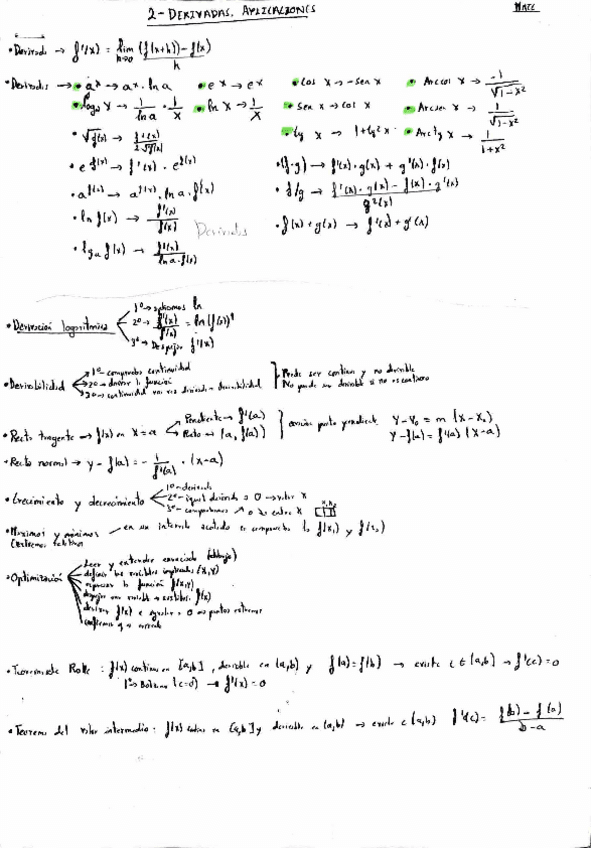 2 - DERIVADAS. APLICACIONES
MATE
• Derivada → f'(x) = lim h→0 (f(x+h)) - f(x) / h
• Derivadas → • aˣ → aˣ · ln a • eˣ → eˣ • cos x → -sen x • Arccos x → -1/√(1-x²)
• logₐ x → 1/ln a · 1/x • ln x → 1/x • sen x → cos x • Arcsen x → 1/√(1-x²)
• √f(x) → f'(x)/2√f(x) • tg x → 1+tg² x • Arctg x → 1/(1+x²)
• e^f(x) → f'(x) · e^f(x) • (f·g) → f'(x) · g(x) + g'(x) · f(x)
• a^f(x) → a^f(x) · ln a · f'(x) • f/g → f'(x) · g(x) - f(x) · g'(x) / g²(x)
• ln f(x) → f'(x)/f(x) Derivadas • f(x) + g(x) → f'(x) + g'(x)
• logₐ f(x) → f'(x)/ln a · f(x)
• Derivación logarítmica
1º → aplicamos ln
2º → f'(x)/f(x) = ln(f(x))'
3º → Despejar f'(x)
• Derivabilidad
1º → comprobar continuidad
2º → derivar la función
3º → continuidad en derivada = derivabilidad
Puede ser continua y no derivable
No puede ser derivable si no es continua
• Recta tangente → f(x) en x=a
Pendiente → f'(a)
Punto → (a, f(a))
ecuación punto pendiente
y-y₀ = m (x-x₀)
y-f(a) = f'(a) (x-a)
• Recta normal → y - f(a) = - 1/f'(a) · (x-a)
• Crecimiento y decrecimiento
1º → derivada
2º → igual derivada a 0 → valor x
3º → comprobamos
• Máximos y mínimos (extremos relativos)
en un intervalo acotado
• Optimización
Leer y entender enunciado (dibujo)
definir las variables implicadas (x,y)
expresar la función f(x,y)
despejar una variable → sustituir f(x)
derivar f(x) e igualar a 0 → puntos extremos
• Teorema de Rolle : f(x) continua en [a,b], derivable en (a,b) y f(a)=f(b) → existe c ∈ (a,b) → f'(c)=0
• Teorema del valor intermedio : f(x) continua en [a,b] y derivable en (a,b) → existe c (a,b) f'(c) = f(b) - f(a) / b-a